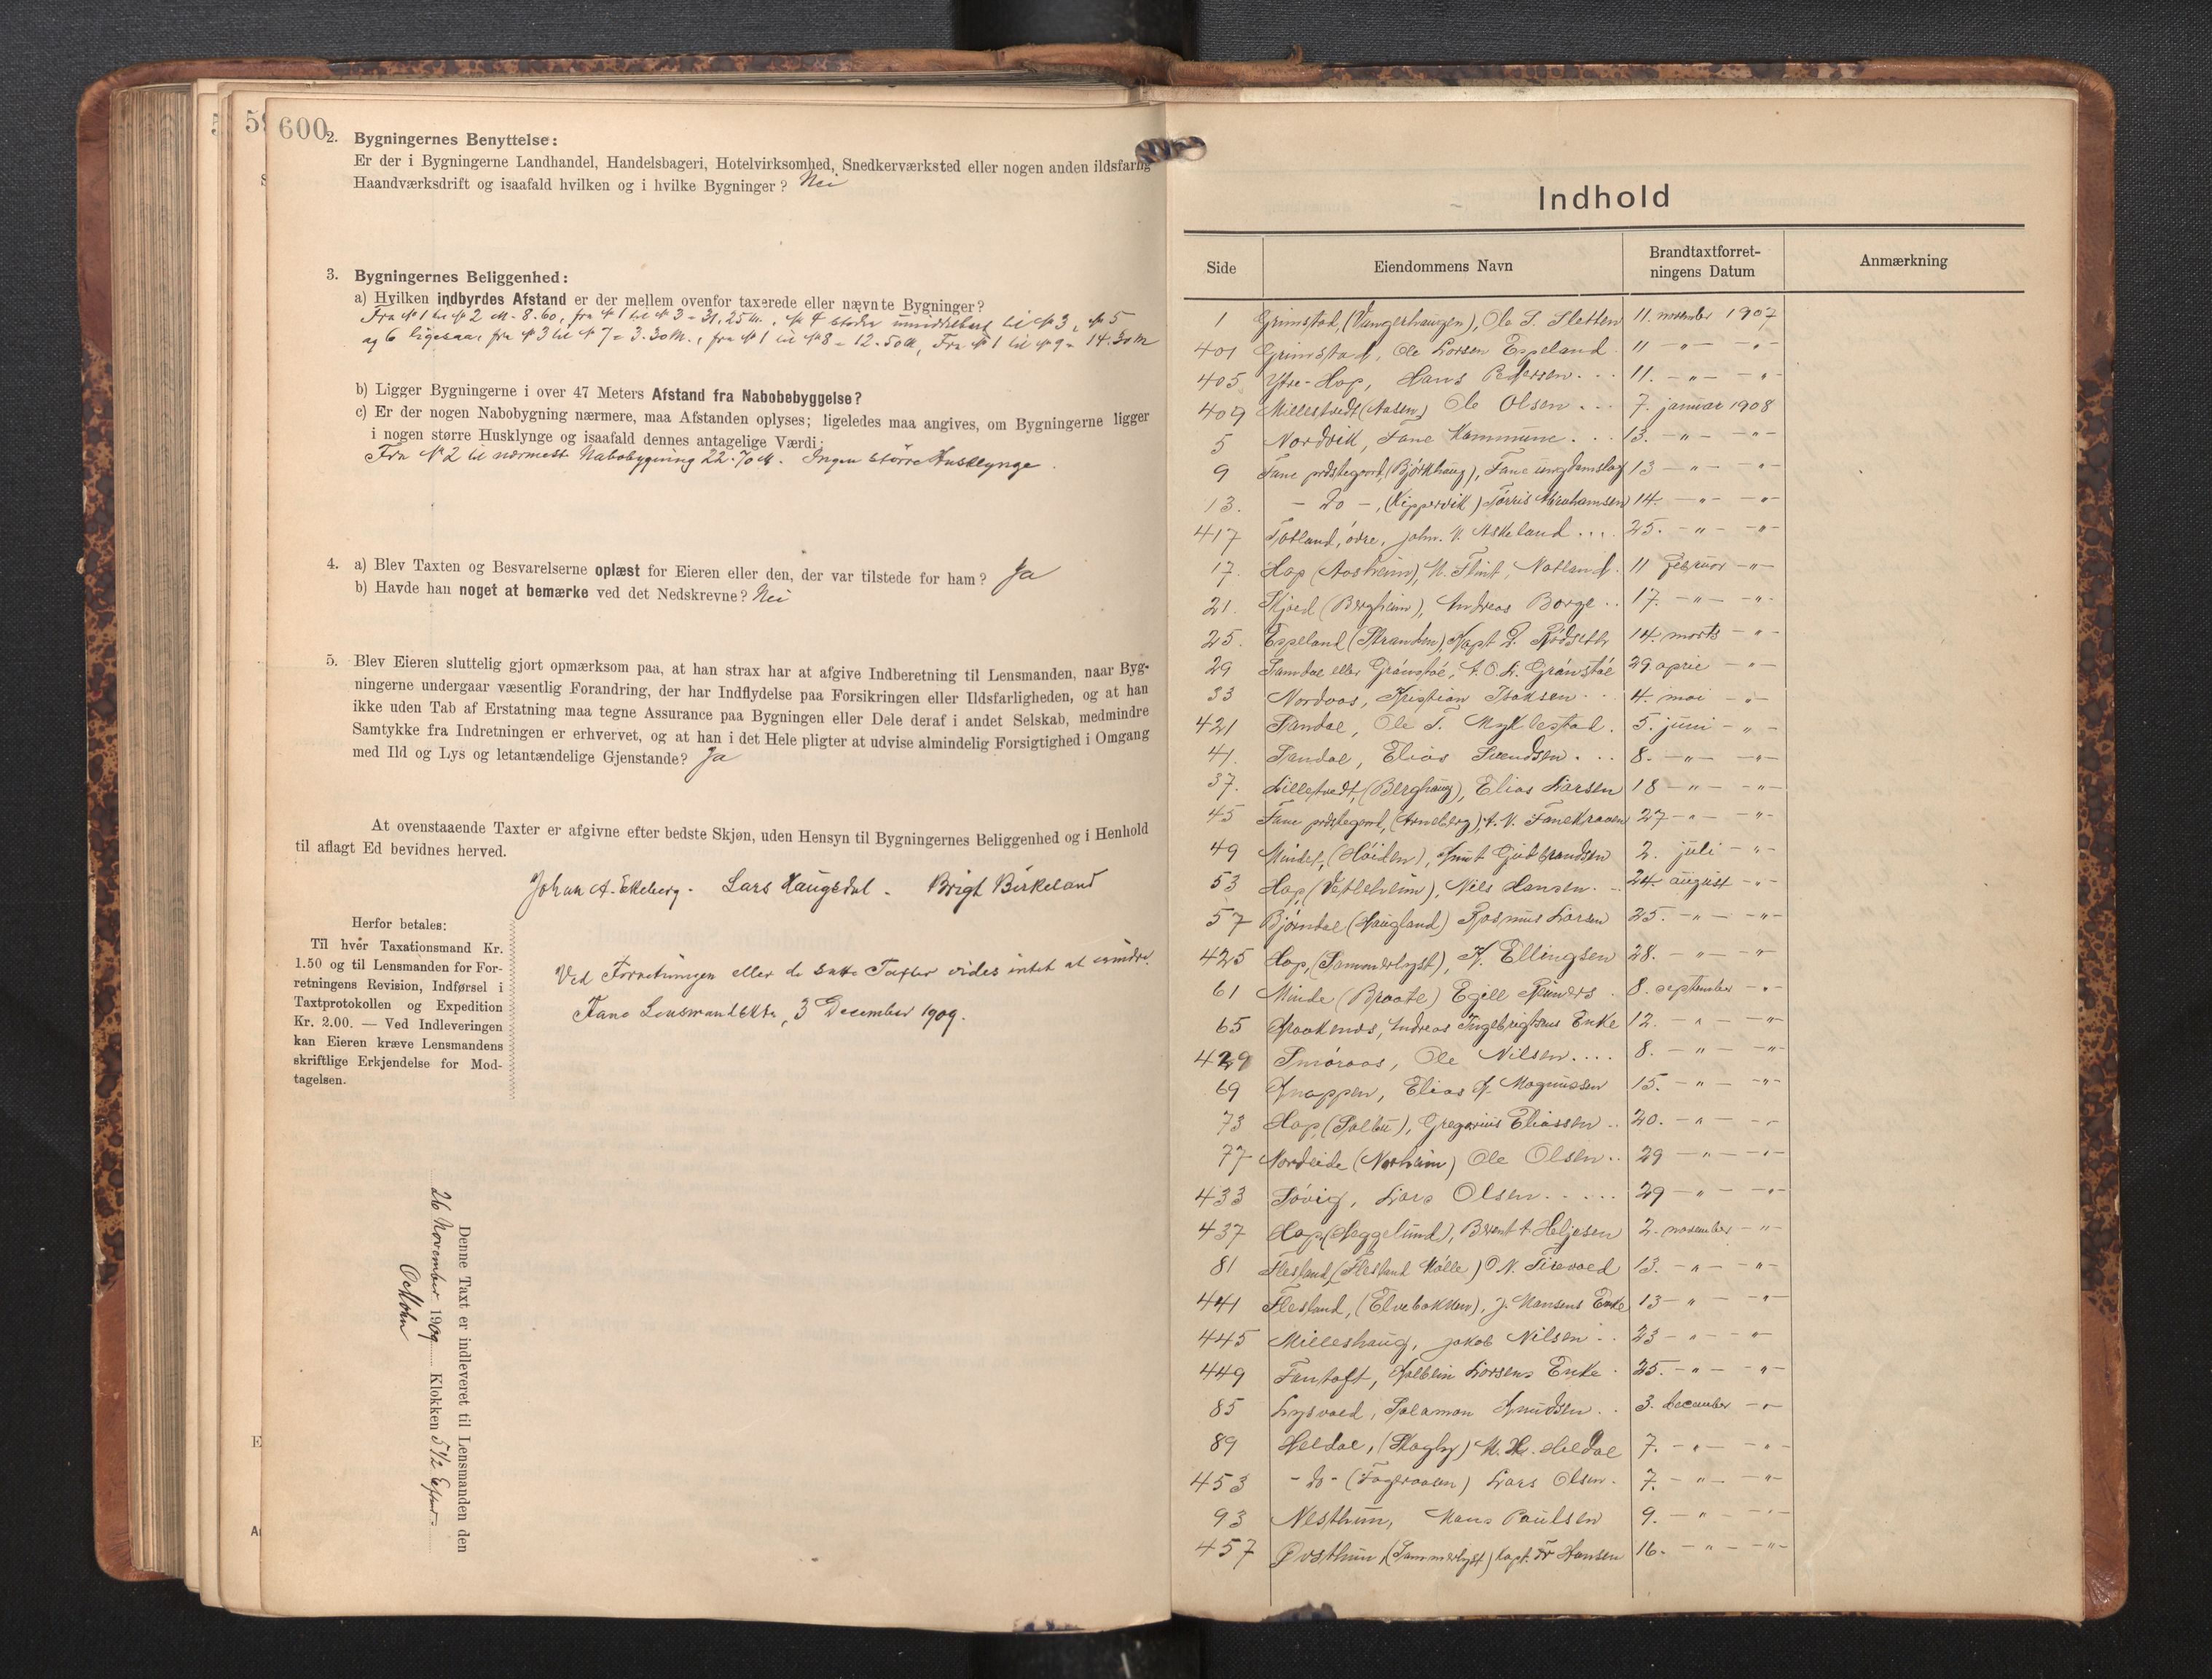 600
2. Bygningernes Benyttelse:
Er der i Bygningerne Landhandel, Handelsbageri, Hotelvirksomhed, Snedkerværksted eller nogen anden ildsfarlig
Haandværksdrift og isaafald hvilken og i hvilke Bygninger? Nei
3. Bygningernes Beliggenhed:
a) Hvilken indbyrdes Afstand er der mellem ovenfor taxerede eller nævnte Bygninger?
Fra № 1 til № 2 M. 8.60, fra № 1 til № 3 = 31,25 M., № 4 støder umiddelbart til № 3, № 5
og 6 ligesaa, fra № 3 til № 7 = 3.30 M., fra № 1 til № 8 = 12.50 M, Fra № 1 til № 9 = 14.30 M
b) Ligger Bygningerne i over 47 Meters Afstand fra Nabobebyggelse?
c) Er der nogen Nabobygning nærmere, maa Afstanden oplyses; ligeledes maa angives, om Bygningerne ligger
i nogen større Husklynge og isaafald dennes antagelige Værdi:
Fra № 2 til nærmeste Nabobygning 22.70 M. Ingen större Husklynge.
4. a) Blev Taxten og Besvarelserne oplæst for Eieren eller den, der var tilstede for ham? Ja
b) Havde han noget at bemærke ved det Nedskrevne? Nei
5. Blev Eieren sluttelig gjort opmærksom paa, at han strax har at afgive Indberetning til Lensmanden, naar Byg-
ningerne undergaar væsentlig Forandring, der har Indflydelse paa Forsikringen eller Ildsfarligheden, og at han
ikke uden Tab af Erstatning maa tegne Assurance paa Bygningen eller Dele deraf i andet Selskab, medmindre
Samtykke fra Indretningen er erhvervet, og at han i det Hele pligter at udvise almindelig Forsigtighed i Omgang
med Ild og Lys og letantændelige Gjenstande? Ja
At ovenstaaende Taxter er afgivne efter bedste Skjøn, uden Hensyn til Bygningernes Beliggenhed og i Henhold
til aflagt Ed bevidnes herved.
Johan A. Ekeberg. Lars Haugsdal. Brigt Birkeland
Herfor betales:
Til hver Taxationsmand Kr.
1.50 og til Lensmanden for For-
retningens Revision, Indførsel i
Taxtprotokollen og Expedition
Kr. 2.00. — Ved Indleveringen
kan Eieren kræve Lensmandens
skriftlige Erkjendelse for Mod-
tagelsen.
Ved Forretningen eller de satte Taxter vides intet at erindre.
Fane Lensmandskt., 3 December 1909.
Denne Taxt er indleveret til Lensmanden den
26 November 1909 Klokken 5 1/2 Efter
O. Mohn
Indhold
Side Eiendommens Navn Brandtaxtforret-
ningens Datum Anmærkning
1 Grimstad, (Vangerhaugen), Ole S. Sletten 11. november 1907
401 Grimstad, Ole Larsen Espeland 11 — " — — " —
405 Ytre-Hop, Hans Pedersen... 11. — " — — " —
409 Millestvedt (Aasen) Ole Olsen... 7. januar 1908
5 Nordvik, Fane Kommune... 13. — " — — " —
9 Fane prestegaard, (Bjørkhaug), Fane ungdomslag 13 — " — — " —
13. — Do —, (Kippervik) Tørris Abrahamsen 14. — " — — " —
417 Totland, ødre, Johan V. Askeland.... 25. — " — — " —
17. Hop (Aasheim), N. Flint, Natland. 11 Februar — " —
21. Skjold (Bergheim), Andreas Borge.. 17. — " — — " —
25. Espeland (Stranden), Kapt. 14. marts — " —
29 Sandal eller Grønstøl, A. O. L. Grønstøl 29 april — " —
33 Nordaas, Kristian Isaksen.. 4. mai — " —
421 Sandal, Ole T. Myklestad. 5. juni — " —
41. Sandal, Elias Svendsen... 8. — " — — " —
37. Lillestvedt, (Berghaug), Elias Larsen 18 — " — — " —
45 Fane prestegaard, (Arneberg), A. V. Fanekraaen 27 — " — — " —
49 Mindet, (Haiden), Knut Gudbrandsen 2. juli — " —
53 Hop, (Vetleheim), Nils Hansen.. 24. august — " —
57 Bjørndal (Haugland) Rasmus Larsen 25. — " — — " —
425 Hop, (Sommerlyst), K. Ellingsen 28. — " — — " —
61 Minde (Braate) Egill Reimers. 8. september — " —
65 Kraakenes, Andreas Ingebrigtsens Enke 12. — " — — " —
429 Smøraas, Ole Nilsen.... 8. — " — — " —
69 Knappen, Elias K. Magnussen 15. — " — — " —
73 Hop, (Solbu), Gregorius Eliassen.. 20. — " — — " —
77 Nordeide (Norheim) Ole Olsen.. 29 — " — — " —
433 Søvig, Lars Olsen..... 29 — " — — " —
437 Hop, (Heggelund), Berent A. Heljesen 2. november — " —
81 Flesland, (Flesland Mølle) O. N. Tirevold 13. — " — — " —
441 Flesland, (Elvebakken), J. Hansens Enke 13 — " — — " —
445 Milleshaug, Jakob Nilsen.. 23 — " — — " —
449 Fantoft, Kolbein Larsens Enke. 25. — " — — " —
85 Lysvold, Salamon Knudsen.. 3. december — " —
89 Heldal, (Skogly) M. H. Heldal 7. — " — — " —
453 — Do — (Fageraasen) Lars Olsen. 7. — " — — " —
93 Nesthun, Hans Paulsen 9. — " — — " —
457 Øvsthun, (Sommerlyst) Capt. Fr Hansen 16. — " — — " —